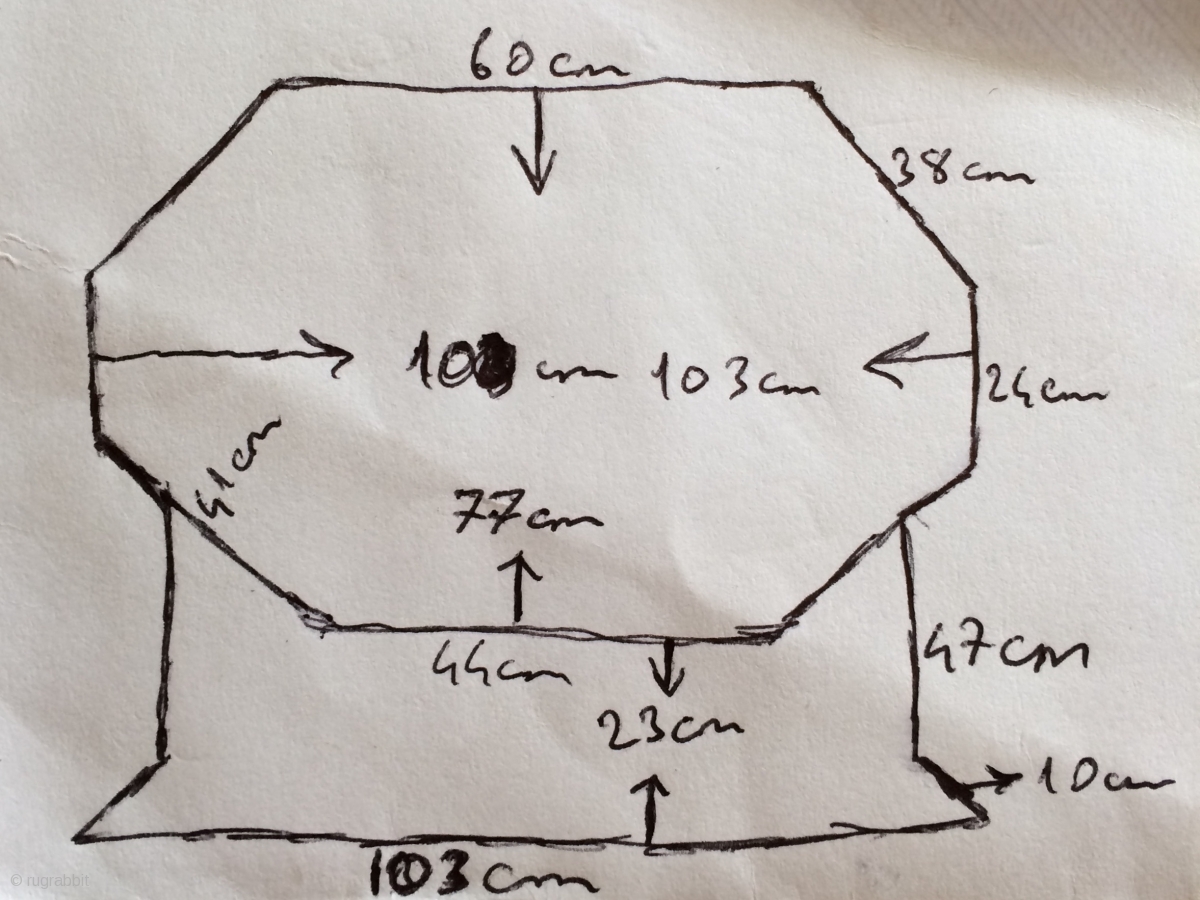 60cm
38cm
103cm
24cm
41cm
77cm
44cm
47cm
23cm
10cm
103cm
© rugrabbit